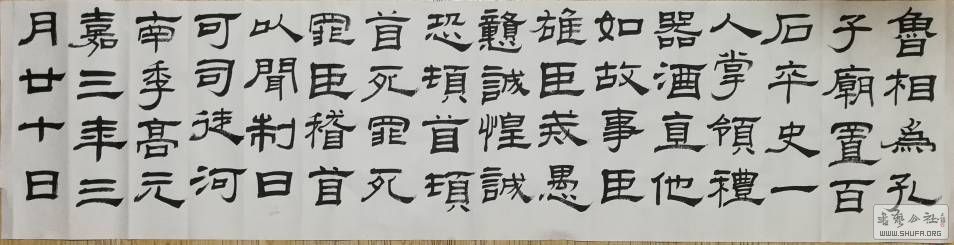 魯相為孔
子廟置百
石卒史一
人掌領禮
器酒直他
如故事臣
雄臣戒愚
戇誠惶誠
恐頓首頓
首死罪死
罪臣稽首
以聞制曰
可司徒河
南季高元
嘉三年三
月廿十日
WWW.SHUFA.ORG